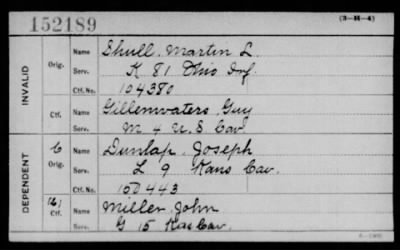 152189
(3-H-4)
INVALID
Orig.
Name Shull, Martin L.
Serv. K 81 Ohio Inf.
Ctf. No. 104380
Ctf.
Name Gillenwaters Guy
Serv. M 4 U.S Cav
DEPENDENT
C
Orig.
Name Dunlap, Joseph
Serv. L 9 Kans Cav.
Ctf. No. 150443
Ctf.
Name Miller, John
G 15 Kas Cav.